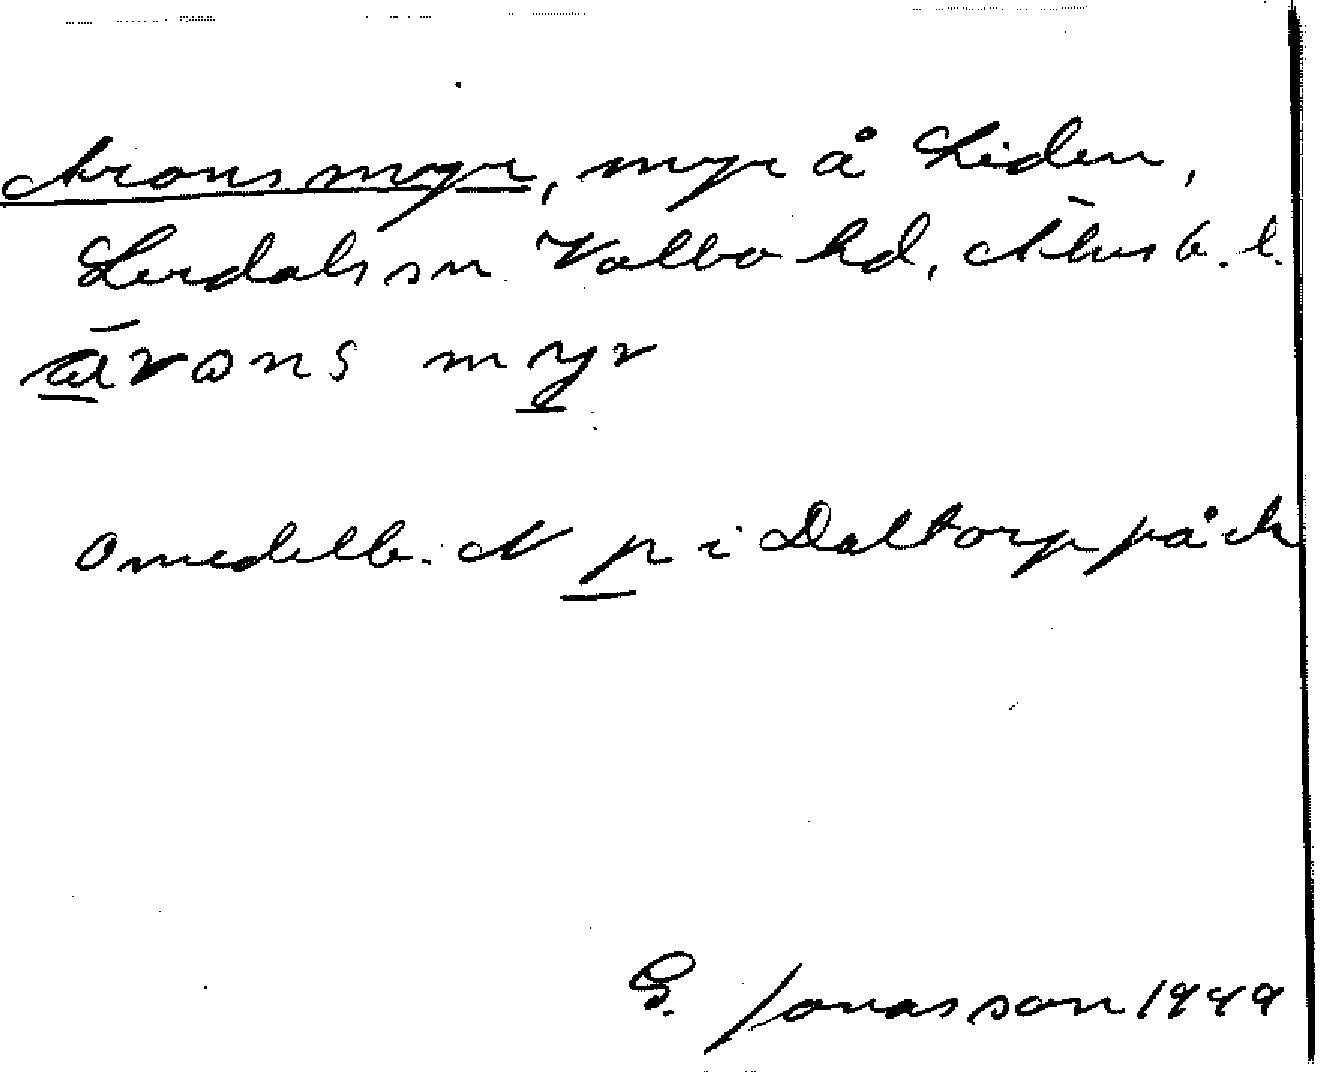 Aronsmyr, myr å Liden,
Lerdals sn Valbo hd, Älvsb. l.
ārons myr
Omedelb. N p i Daltorp på ek
G. Jonasson 1949